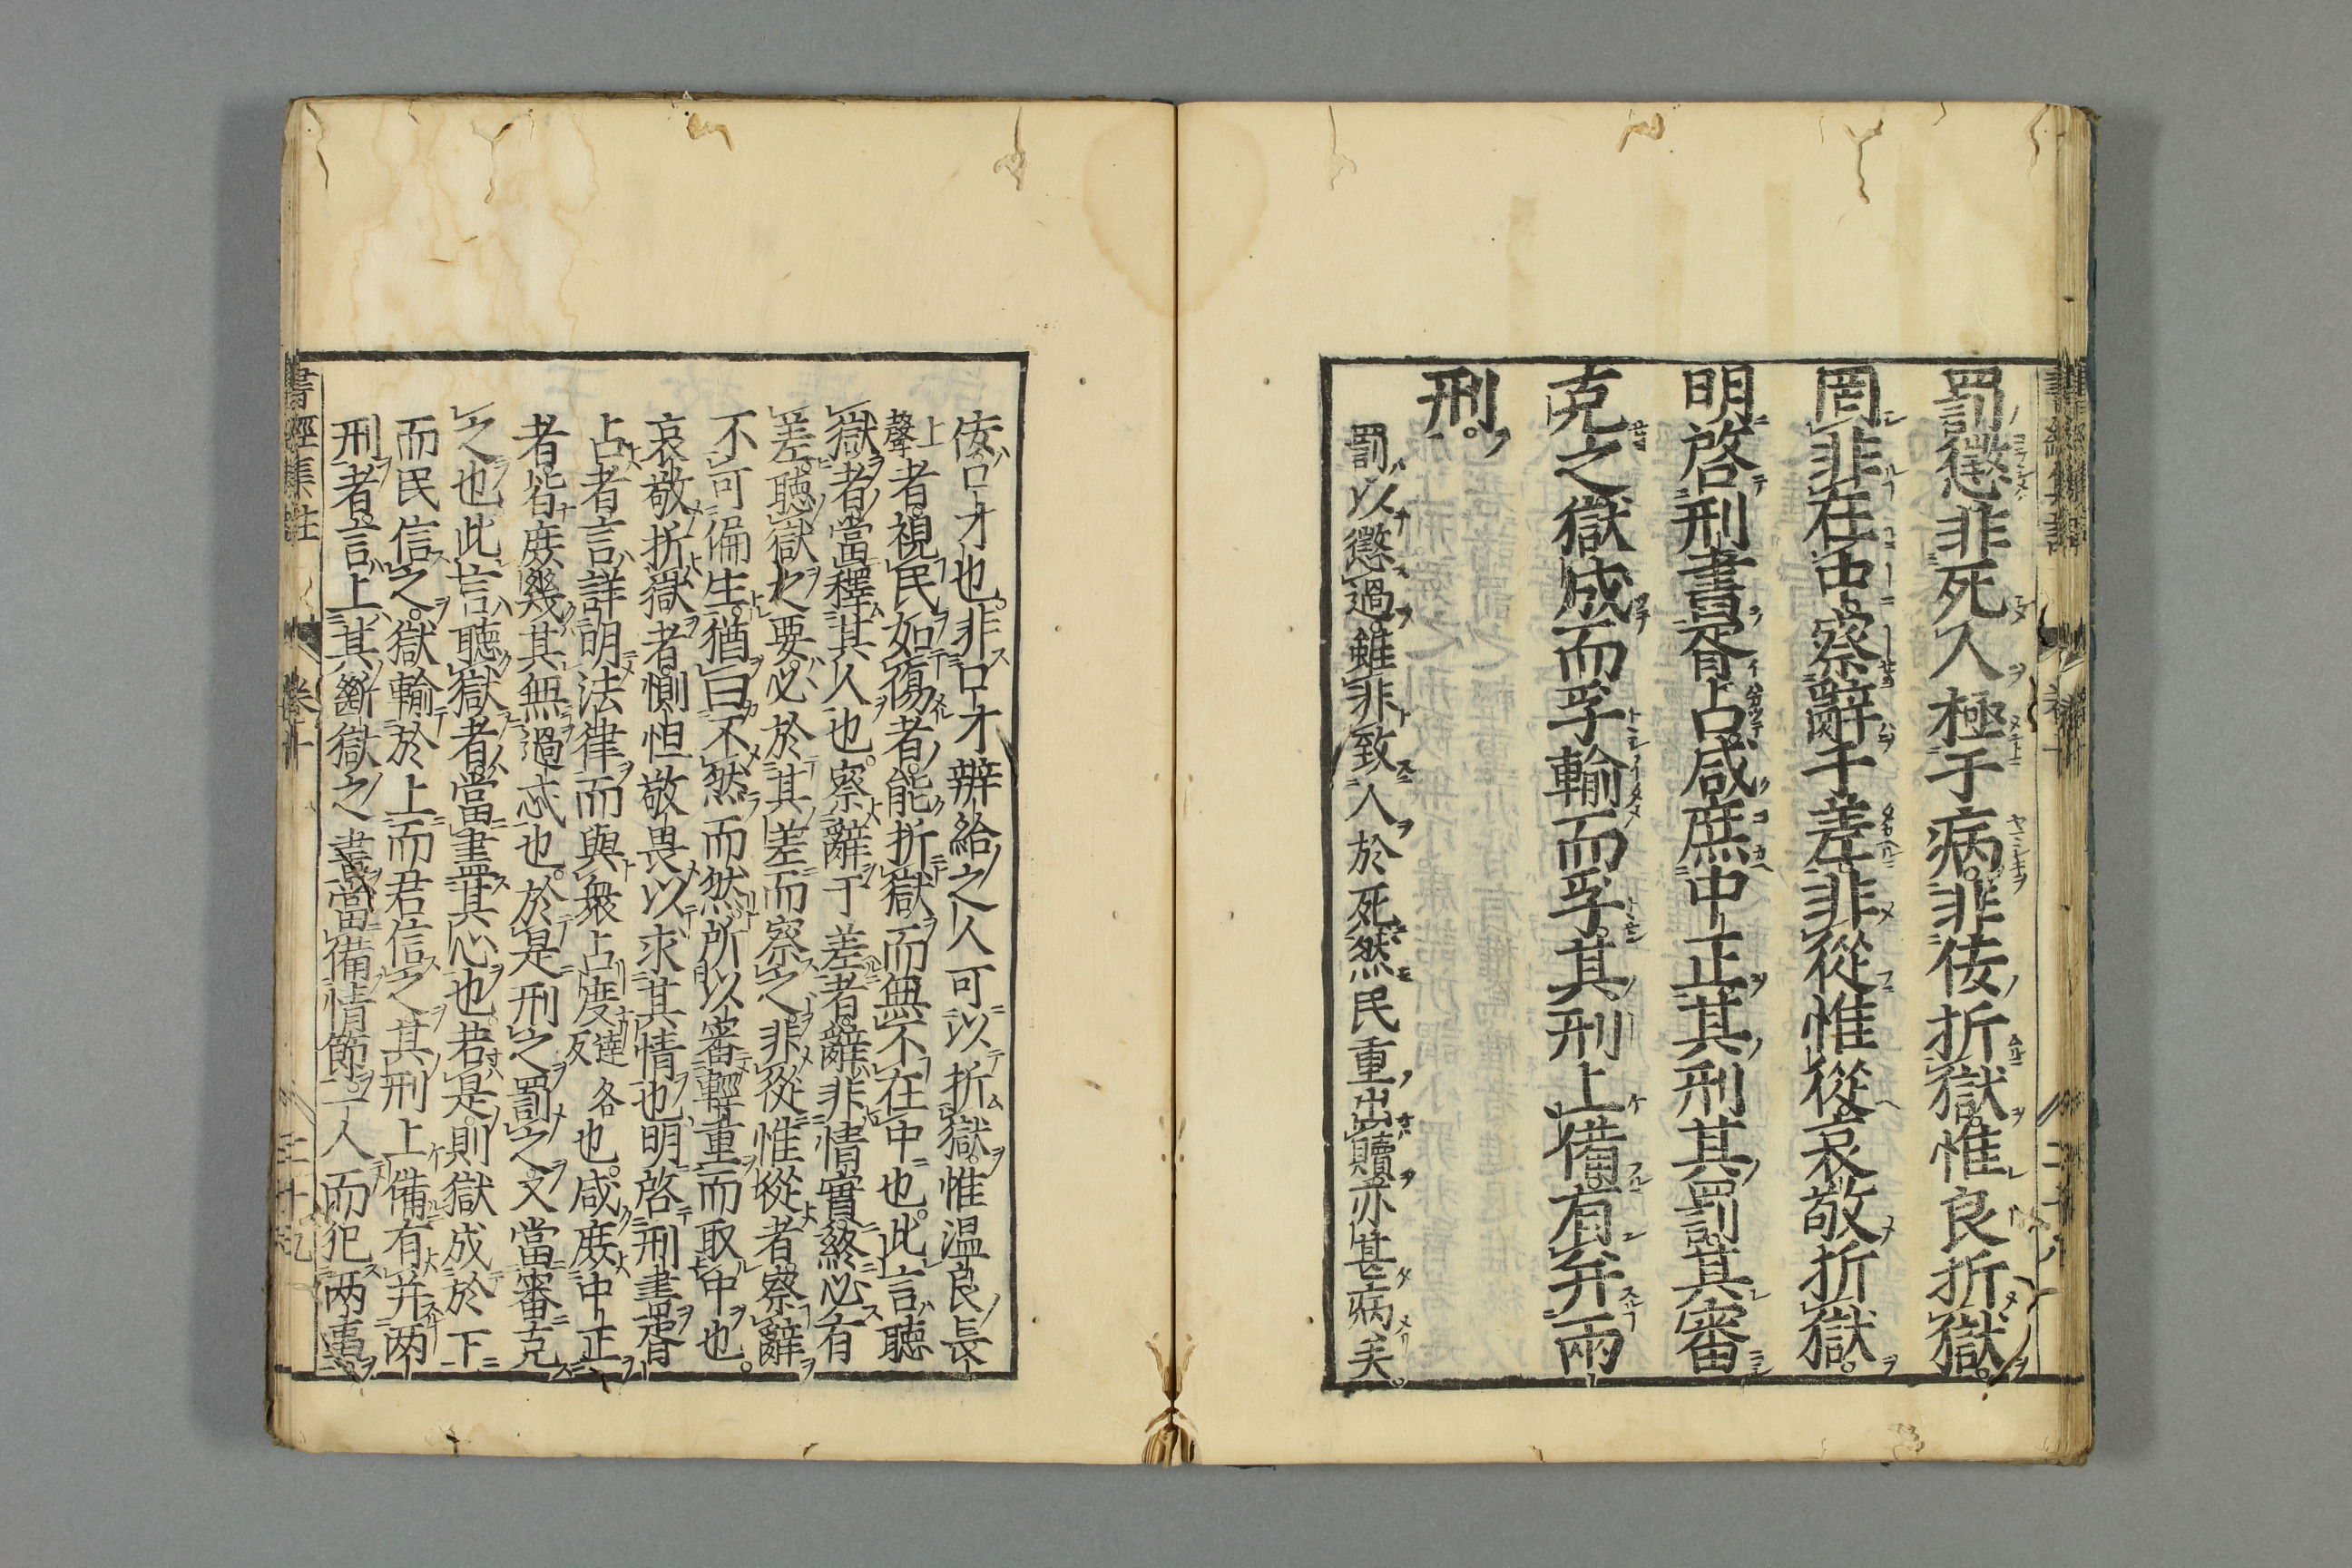 罰懲非死人極于病。非佞折獄。惟良折獄。
罔非在中。察辭于差。非從惟從。哀敬折獄。
明啓刑書胥占。咸庶中正。其刑其罰。其審
克之。獄成而孚。輸而孚。其刑上備。有并兩
刑。
罰以懲過。雖非致人於死。然民重出贖。亦甚病矣。
佞。口才也。非口才辯給之人可以折獄。惟温良長
者。視民如傷者。能折獄而無不在中也。此言聽
獄者。當擇其人也。察辭于差者。辭非情實。終必有
差。聽獄之要。必於其差而察之。非從惟從者。察辭
不可偏生。猶曰不然而然。所以審輕重而取中也。
哀敬折獄者。惻怛敬畏以求其情也。明啓刑書胥
占者。言詳明法律而與衆占度達各反也。咸庶中正
者。皆庶幾其無過忒也。於是刑之罰之。又當審克
之也。此言聽獄者。當盡其心也。若是。則獄成於下
而民信之。獄輸於上而君信之。其刑上備有并兩
刑者。言上其斷獄之書當備情節。一人而犯兩事。
書經集註
卷十
二十九